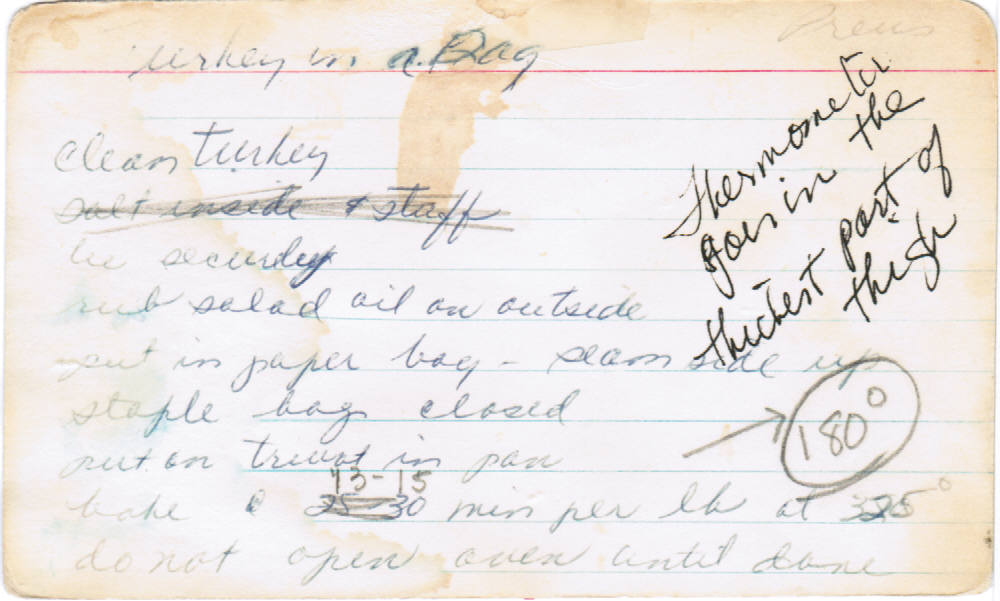 Prews
Turkey in a Bag
clean turkey
salt inside & stuff
tie securely
rub salad oil on outside
put in paper bag - seam side up
staple bag closed
put on trivot in pan
13-15
bake @ 25-30 min per lb at 325°
do not open oven until done
Thermometer
goes in the
thickest part of
thigh
180°